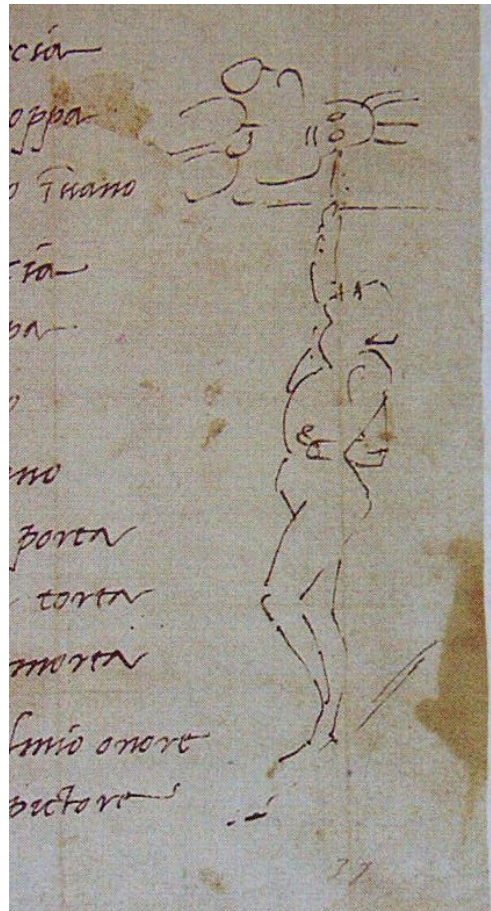 ccia
oppa
ccia
pa
o
ano
porta
torta
morta
l mio onore
pictore